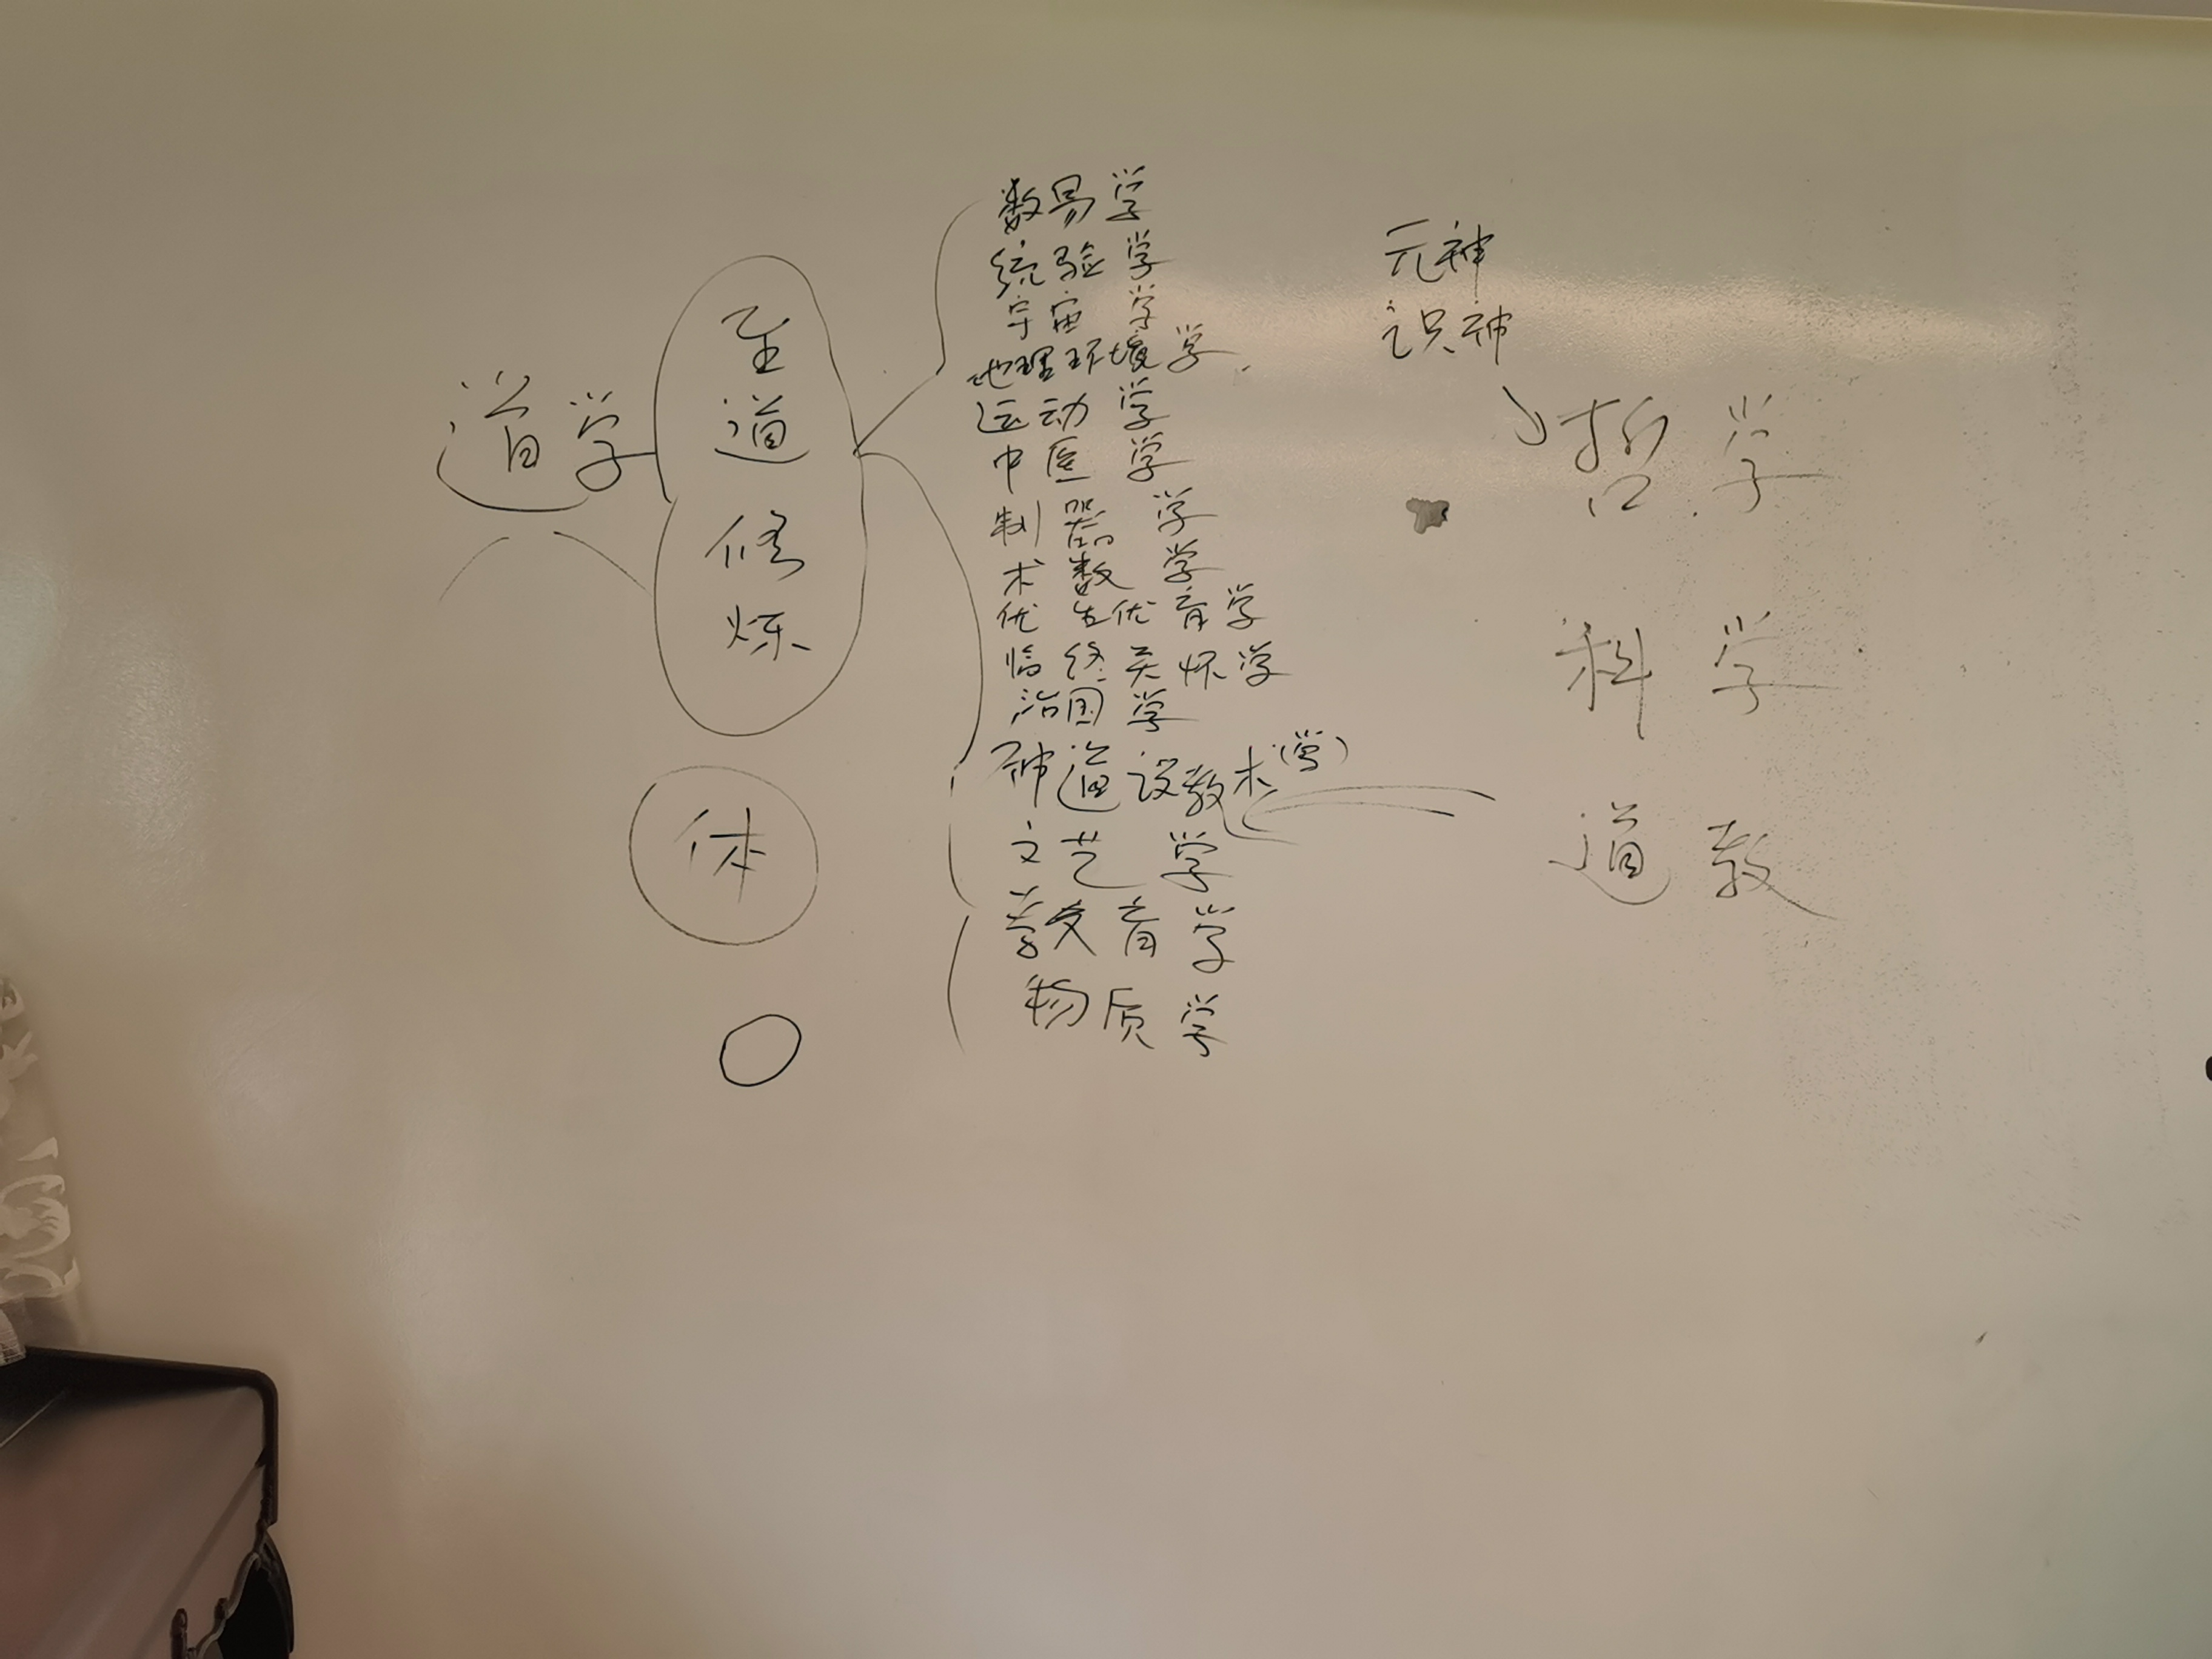 道学
至
道
修
炼
体
数易学
统验学
宇宙学
地理环境学
运动学
中医学
制器学
术数学
优生优育学
临终关怀学
治国学
神道设教术(学)
文艺学
教育学
物质学
元神
识神
哲学
科学
道教